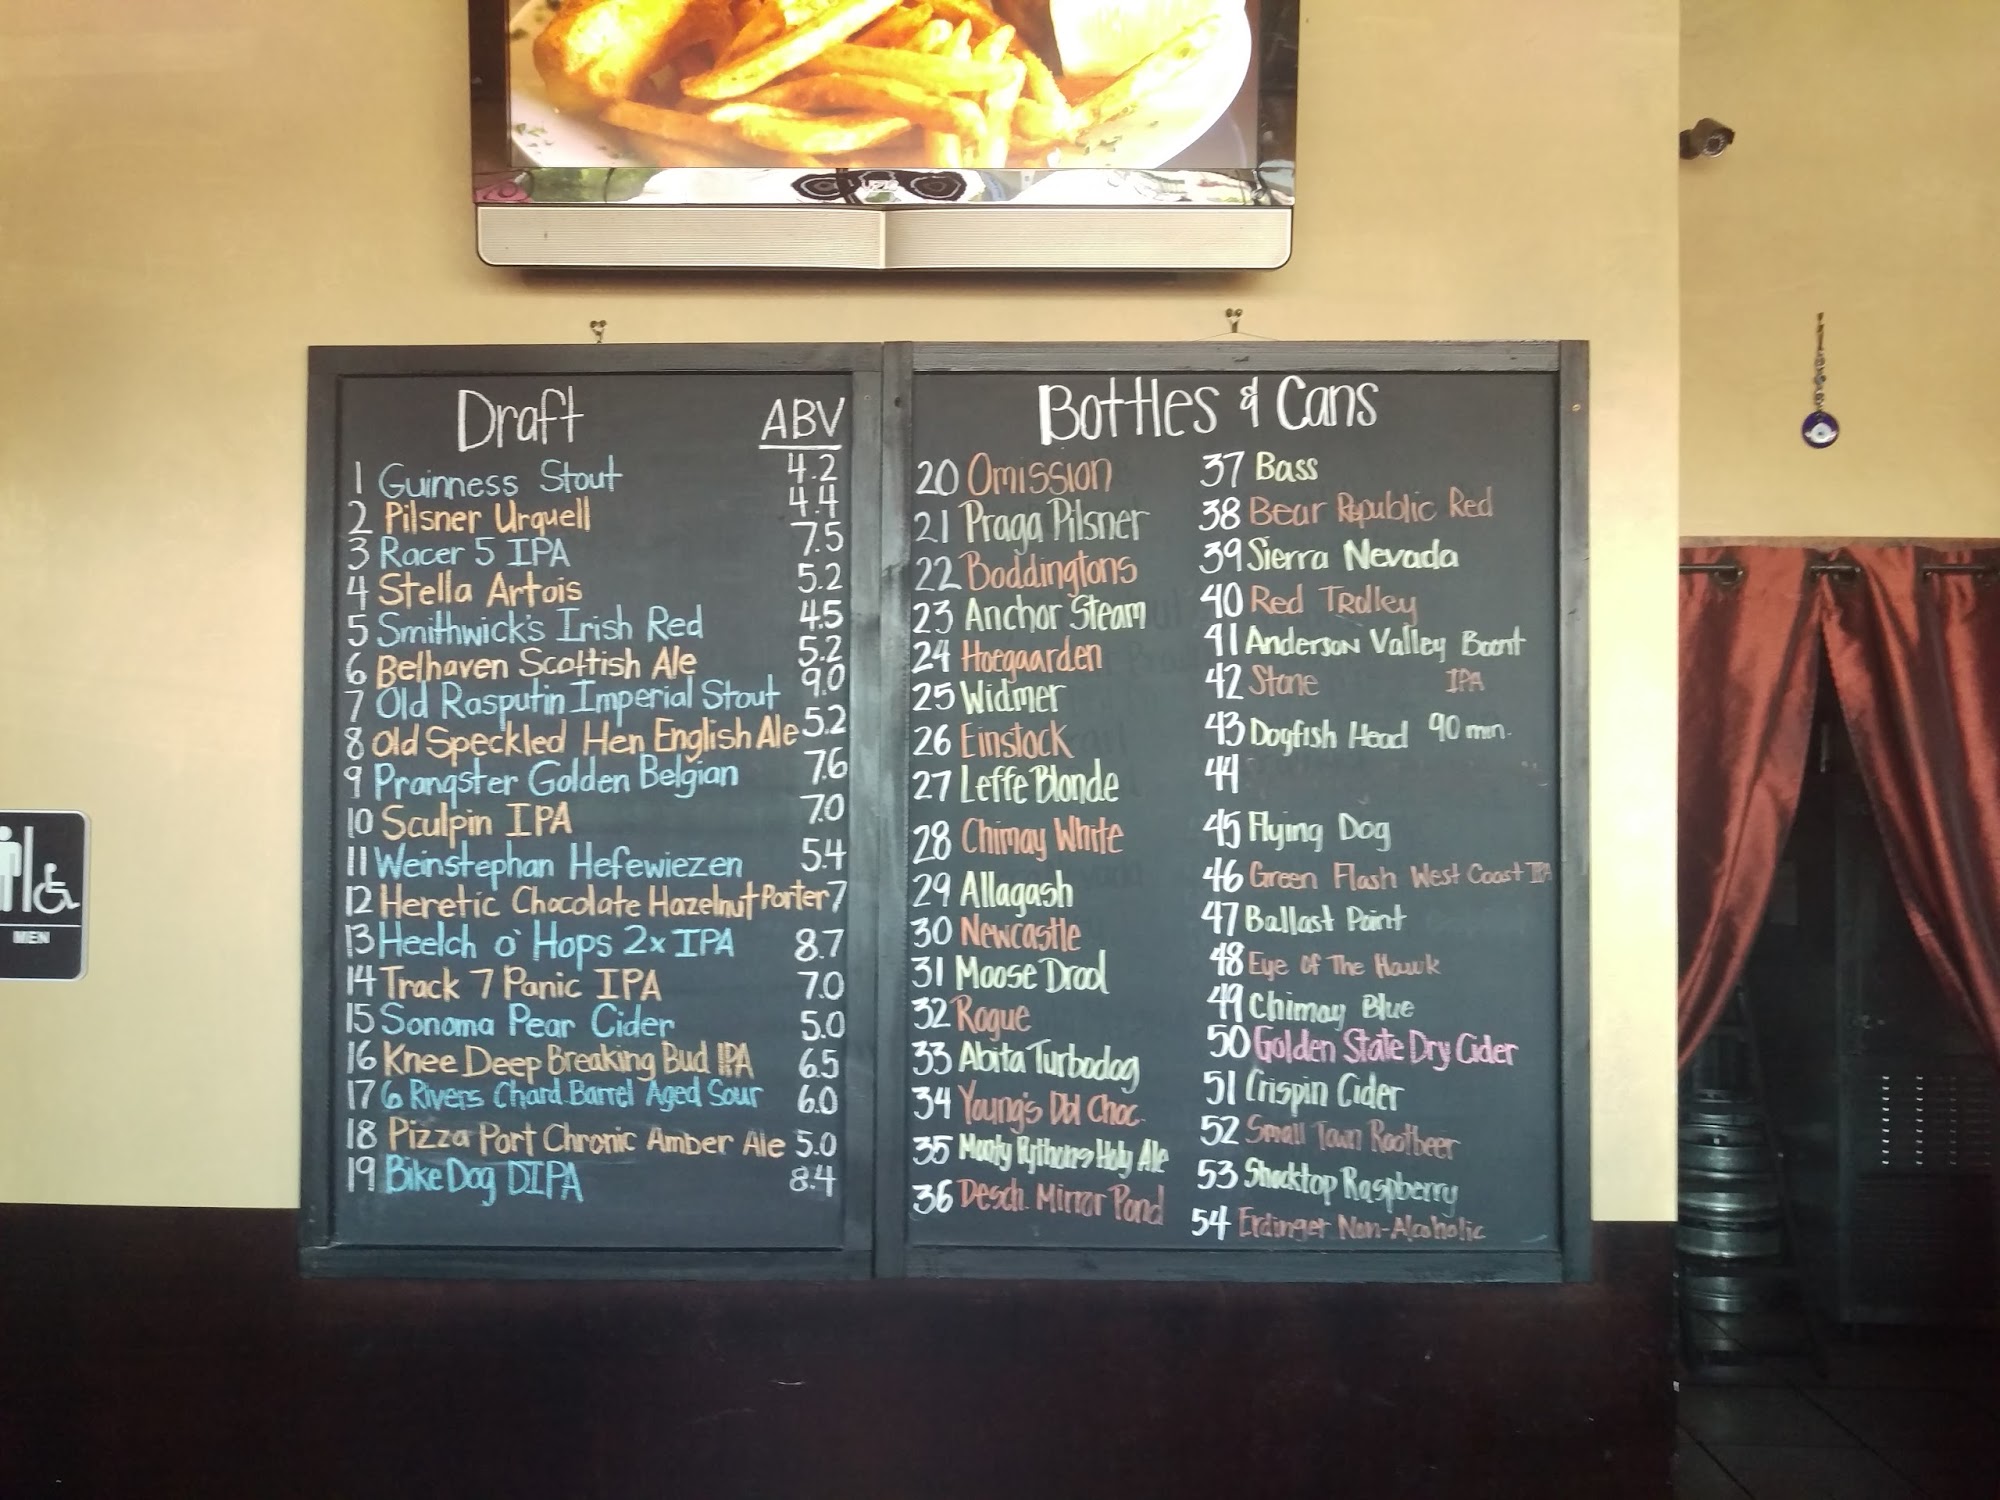 Draft
ABV
1 Guinness Stout 4.2
2 Pilsner Urquell 4.4
3 Racer 5 IPA 7.5
4 Stella Artois 5.2
5 Smithwick's Irish Red 4.5
6 Belhaven Scottish Ale 5.2
7 Old Rasputin Imperial Stout 9.0
8 Old Speckled Hen English Ale 5.2
9 Prangster Golden Belgian 7.6
10 Sculpin IPA 7.0
11 Weinstephan Hefewiezen 5.4
12 Heretic Chocolate Hazelnut Porter 7
13 Heelch o' Hops 2x IPA 8.7
14 Track 7 Panic IPA 7.0
15 Sonoma Pear Cider 5.0
16 Knee Deep Breaking Bud IPA 6.5
17 6 Rivers Chard. Barrel Aged Sour 6.0
18 Pizza Port Chronic Amber Ale 5.0
19 Bike Dog DIPA 8.4
Bottles & Cans
20 Omission
21 Praga Pilsner
22 Boddingtons
23 Anchor Steam
24 Hoegaarden
25 Widmer
26 Einstock
27 Leffe Blonde
28 Chimay White
29 Allagash
30 Newcastle
31 Moose Drool
32 Rogue
33 Abita Turbodog
34 Young's Dbl Choc.
35 Monty Pythons Holy Ale
36 Desch. Mirror Pond
37 Bass
38 Bear Republic Red
39 Sierra Nevada
40 Red Trolley
41 Anderson Valley Boont
42 Stone IPA
43 Dogfish Head 90 min.
44
45 Flying Dog
46 Green Flash West Coast IPA
47 Ballast Point
48 Eye of The Hawk
49 Chimay Blue
50 Golden State Dry Cider
51 Crispin Cider
52 Small Town Rootbeer
53 Shocktop Raspberry
54 Erdinger Non-Alcoholic
MEN